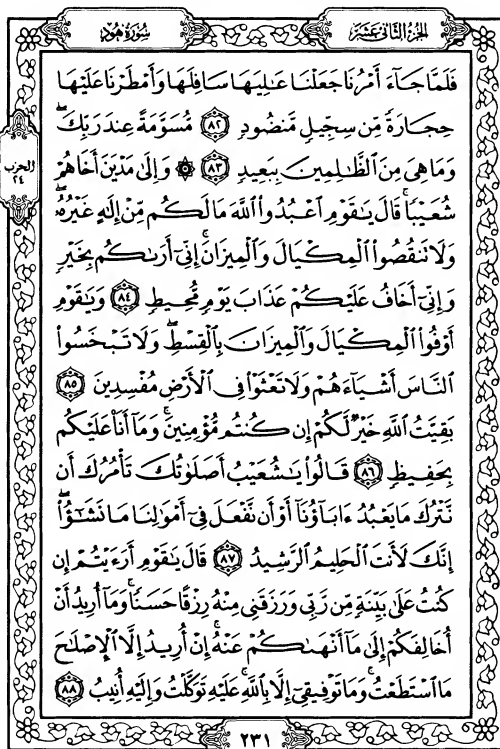 سُورَةُ هُودٍ
الجُزْءُ الثَّانِي عَشَرَ
فَلَمَّا جَآءَ أَمْرُنَا جَعَلْنَا عَٰلِيَهَا سَافِلَهَا وَأَمْطَرْنَا عَلَيْهَا
حِجَارَةً مِّن سِجِّيلٍ مَّنضُودٍ ٨٢ مُّسَوَّمَةً عِندَ رَبِّكَۖ
وَمَا هِىَ مِنَ ٱلظَّٰلِمِينَ بِبَعِيدٍ ٨٣ ۞ وَإِلَىٰ مَدْيَنَ أَخَاهُمْ
الحزب
٢٤
شُعَيْبًاۚ قَالَ يَٰقَوْمِ ٱعْبُدُوا۟ ٱللَّهَ مَا لَكُم مِّنْ إِلَٰهٍ غَيْرُهُۥۖ
وَلَا تَنقُصُوا۟ ٱلْمِكْيَالَ وَٱلْمِيزَانَۚ إِنِّىٓ أَرَىٰكُم بِخَيْرٍ
وَإِنِّىٓ أَخَافُ عَلَيْكُمْ عَذَابَ يَوْمٍ مُّحِيطٍ ٨٤ وَيَٰقَوْمِ
أَوْفُوا۟ ٱلْمِكْيَالَ وَٱلْمِيزَانَ بِٱلْقِسْطِۖ وَلَا تَبْخَسُوا۟
ٱلنَّاسَ أَشْيَآءَهُمْ وَلَا تَعْثَوْا۟ فِى ٱلْأَرْضِ مُفْسِدِينَ ٨٥
بَقِيَّتُ ٱللَّهِ خَيْرٌ لَّكُمْ إِن كُنتُم مُّؤْمِنِينَۚ وَمَآ أَنَا۠ عَلَيْكُم
بِحَفِيظٍ ٨٦ قَالُوا۟ يَٰشُعَيْبُ أَصَلَوٰتُكَ تَأْمُرُكَ أَن
نَّتْرُكَ مَا يَعْبُدُ ءَابَآؤُنَآ أَوْ أَن نَّفْعَلَ فِىٓ أَمْوَٰلِنَا مَا نَشَٰٓؤُا۟ۖ
إِنَّكَ لَأَنتَ ٱلْحَلِيمُ ٱلرَّشِيدُ ٨٧ قَالَ يَٰقَوْمِ أَرَءَيْتُمْ إِن
كُنتُ عَلَىٰ بَيِّنَةٍ مِّن رَّبِّى وَرَزَقَنِى مِنْهُ رِزْقًا حَسَنًاۚ وَمَآ أُرِيدُ أَنْ
أُخَالِفَكُمْ إِلَىٰ مَآ أَنْهَىٰكُمْ عَنْهُۚ إِنْ أُرِيدُ إِلَّا ٱلْإِصْلَٰحَ
مَا ٱسْتَطَعْتُۚ وَمَا تَوْفِيقِىٓ إِلَّا بِٱللَّهِۚ عَلَيْهِ تَوَكَّلْتُ وَإِلَيْهِ أُنِيبُ ٨٨
٢٣١